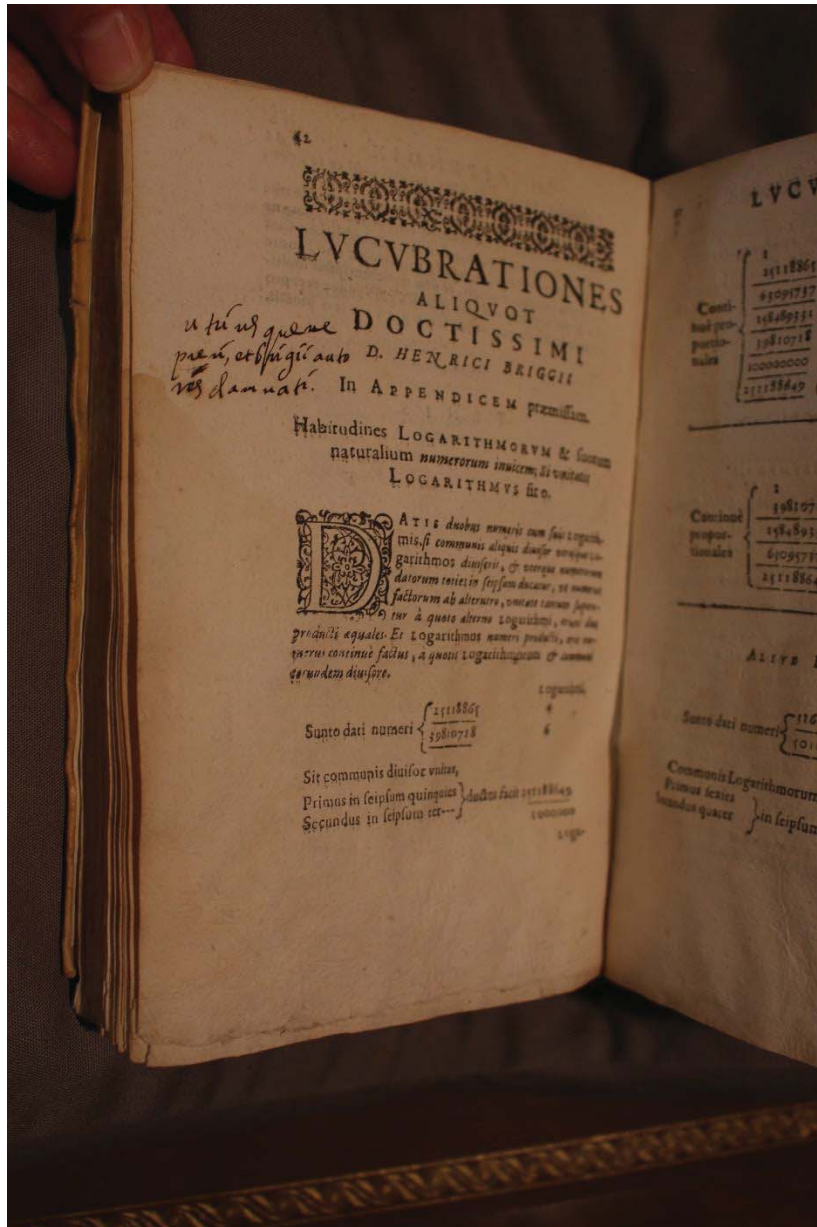 42
LVCVBRATIONES
ALIQVOT
DOCTISSIMI
D. HENRICI BRIGGII
In APPENDICEM præmissam.
Habitudines LOGARITHMORVM & suorum
naturalium numerorum inuicem, si vnitatis
LOGARITHMVS sit o.
DATIS duobus numeris cum suis Logarith-
mis, si communis aliquis diuisor vtrosque Lo-
garithmos diuiserit, & vterque numerorum
datorum toties in seipsum ducatur, vt numerus
factorum ab alterutro, vnitate tantum supere-
tur à quoto alterno Logarithmi, erunt duo
producti æquales. Et Logarithmos numeri producti, erit nu-
merus continuè factus, a quotis Logarithmorum & communi
eorundem diuisore.
Logarithmi.
Sunto dati numeri { 25118865 4
39810718 6
Sit communis diuisor vnitas,
Primus in seipsum quinquies } ductus facit 251188649
Secundus in seipsum ter---
Loga-
LVCV
Conti-
nuè pro-
portio-
nales
1
25118865
63095737
158489331
39810718
100000000
251188649
Continuè
propor-
tionales
1
398107
1584893
6309573
2511886
ALIVD
Sunto dati numeri {
Communis Logarithmorum
Primus sexies
Secundus quater } in seipsum